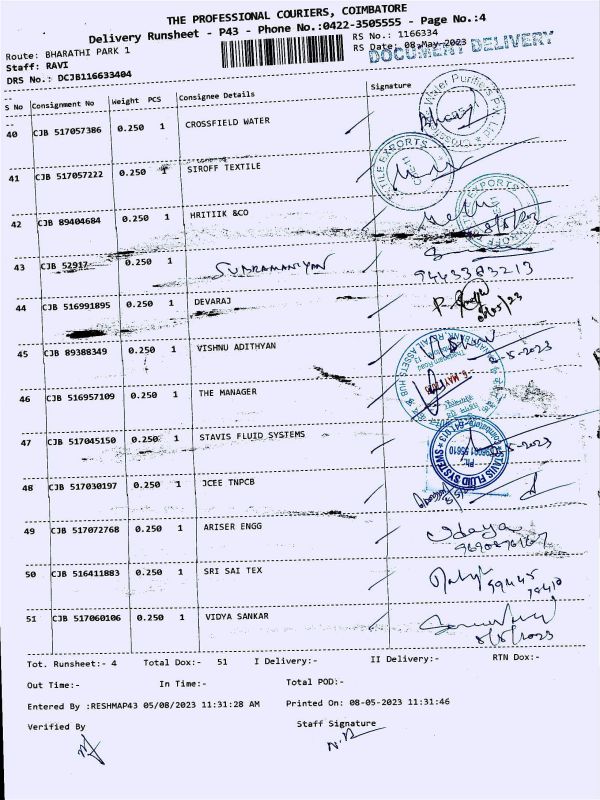 THE PROFESSIONAL COURIERS, COIMBATORE
Delivery Runsheet - P43 - Phone No.:0422-3505555 - Page No.:4
Route: BHARATHI PARK 1
Staff: RAVI
DRS No.: DCJB116633404
RS No.: 1166334
RS Date: 08-May-2023
DOCUMENT DELIVERY
S No Consignment No Weight PCS Consignee Details Signature
40 CJB 517057386 0.250 1 CROSSFIELD WATER
41 CJB 517057222 0.250 1 SIROFF TEXTILE
42 CJB 89404684 0.250 1 HRITIIK &CO
43 CJB 52917 0.250 1 SUBRAMANIYAN
9443383213
44 CJB 516991895 0.250 1 DEVARAJ
08/05/23
45 CJB 89388349 0.250 1 VISHNU ADITHYAN
46 CJB 516957109 0.250 1 THE MANAGER
47 CJB 517045150 0.250 1 STAVIS FLUID SYSTEMS
48 CJB 517030197 0.250 1 JCEE TNPCB
49 CJB 517072768 0.250 1 ARISER ENGG Udaya
50 CJB 516411883 0.250 1 SRI SAI TEX
51 CJB 517060106 0.250 1 VIDYA SANKAR
8/5/2023
Tot. Runsheet:- 4 Total Dox:- 51 I Delivery:- II Delivery:- RTN Dox:-
Out Time:- In Time:- Total POD:-
Entered By :RESHMAP43 05/08/2023 11:31:28 AM Printed On: 08-05-2023 11:31:46
Verified By Staff Signature